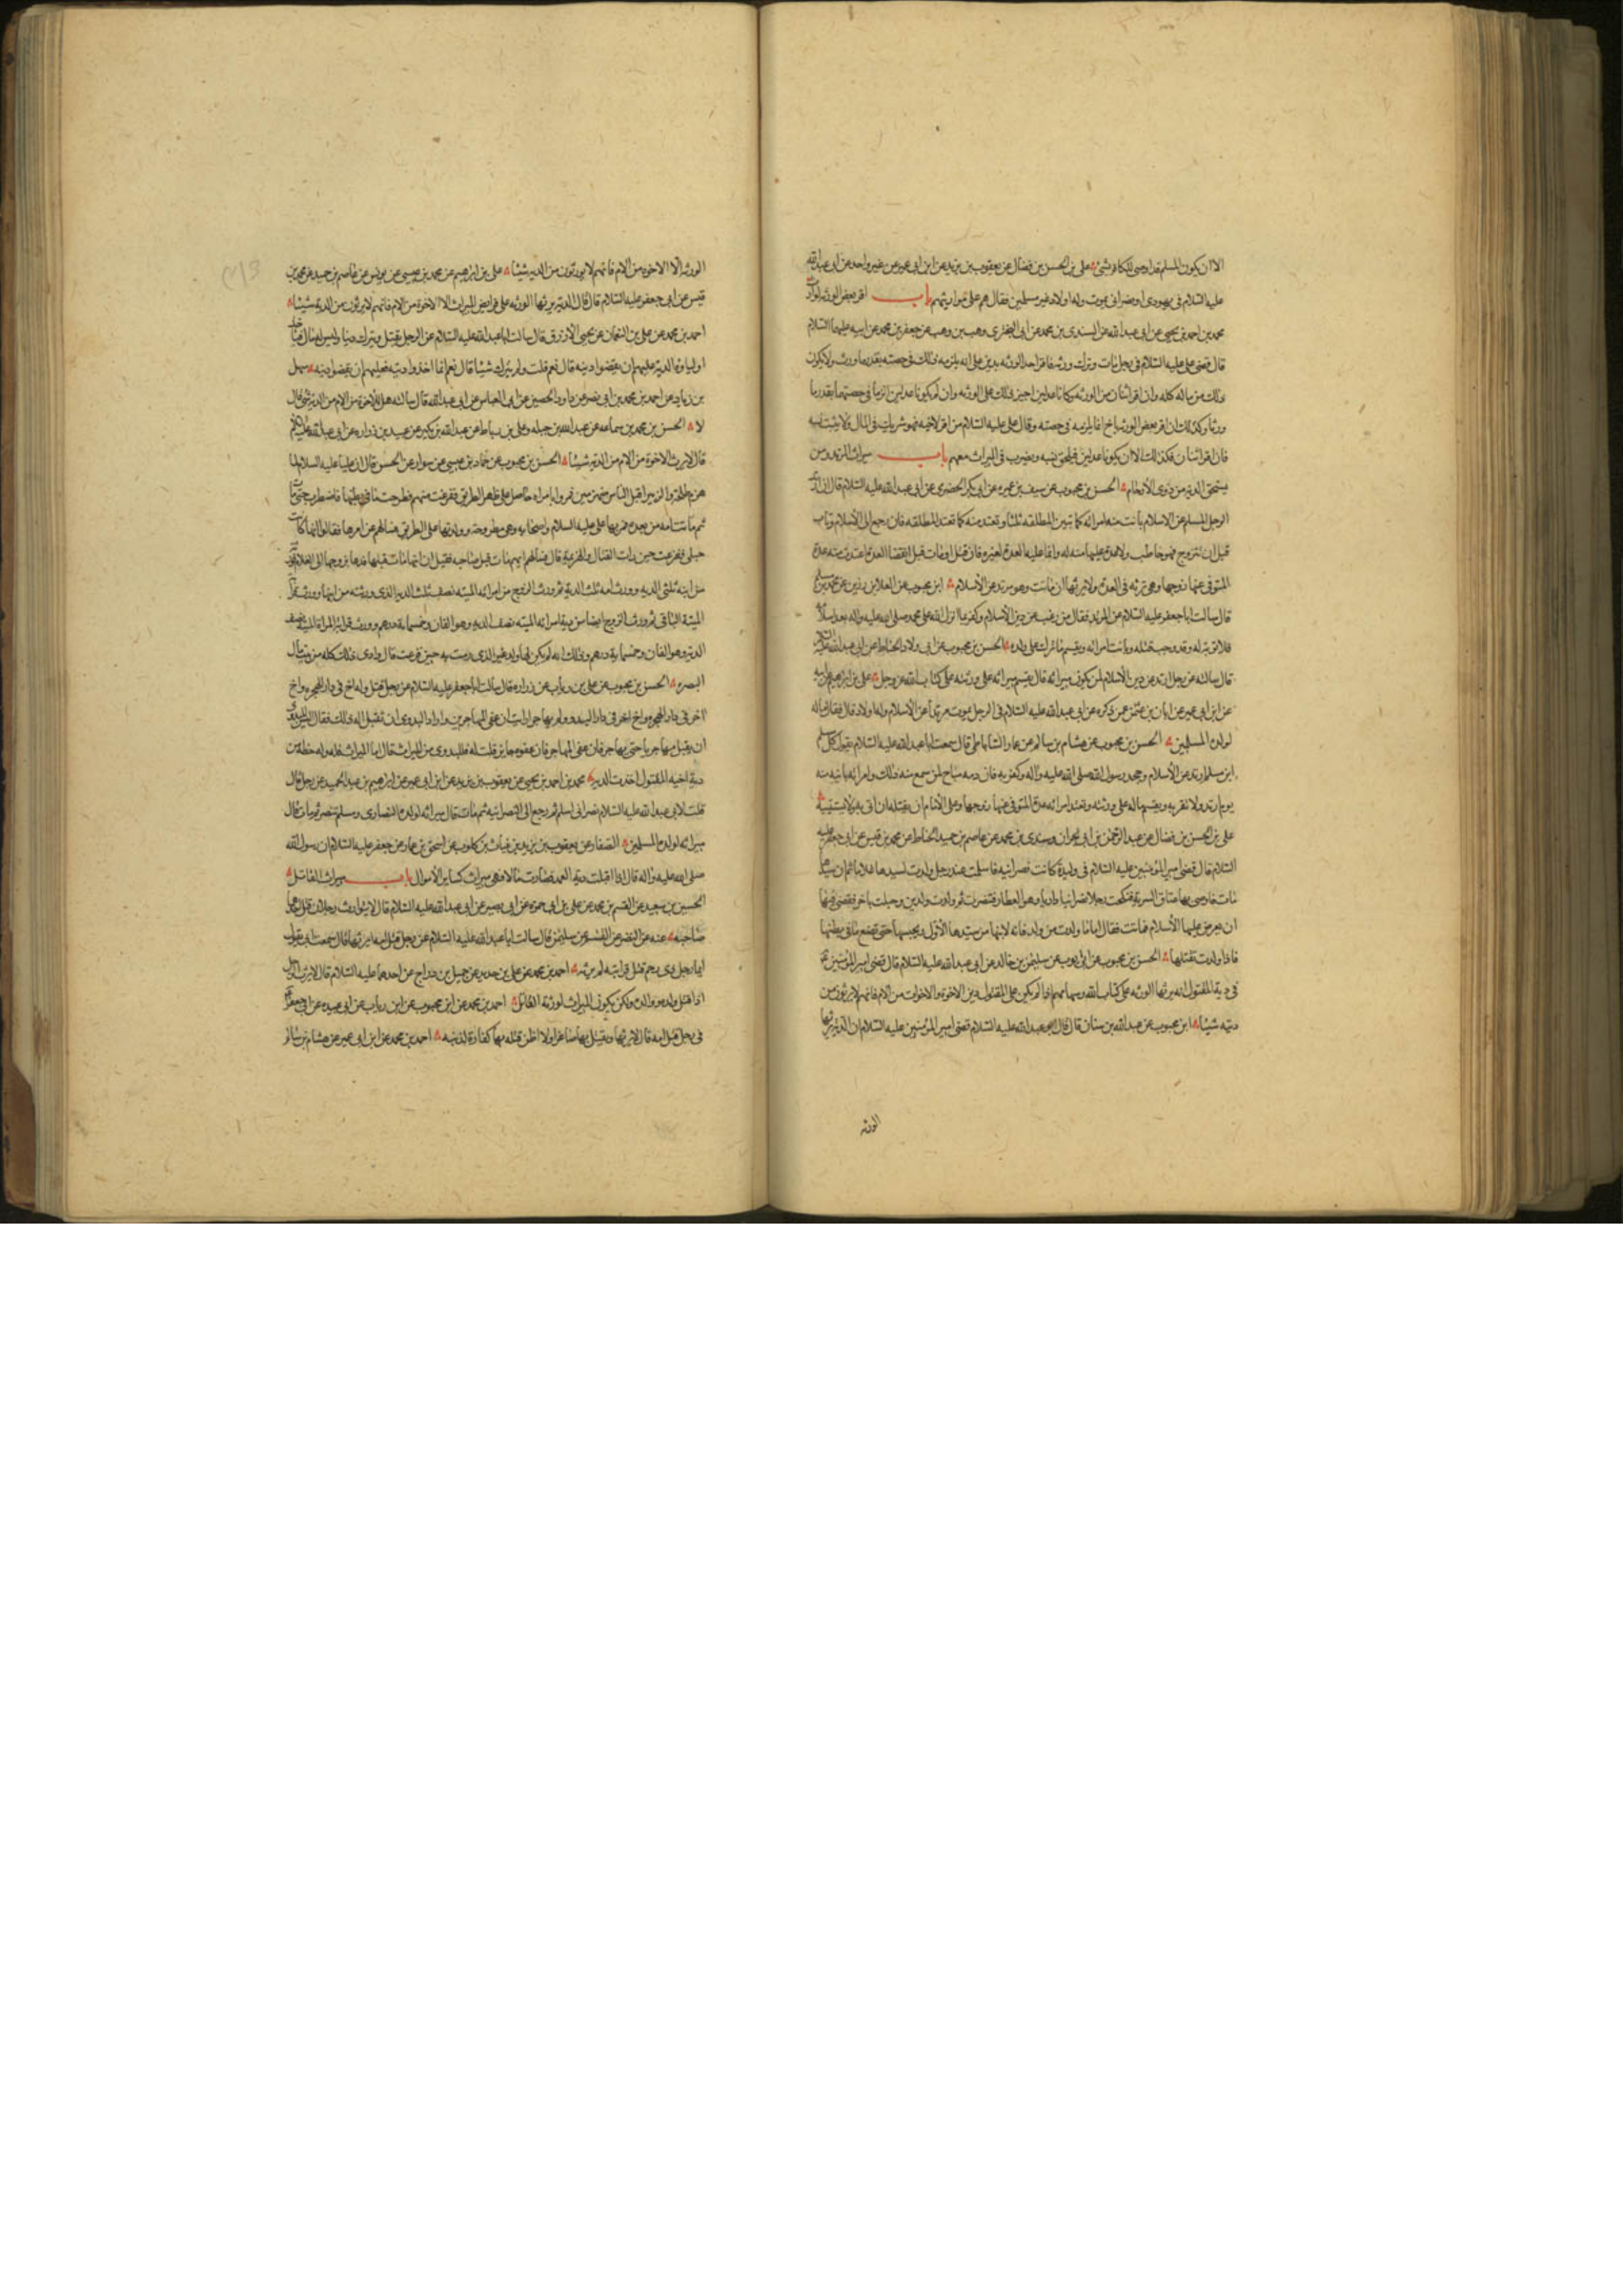 الا ان يكون المسلم قد اوصى للكافر بشئ علي بن الحسن بن فضال عن يعقوب بن يزيد عن ابن ابي عمير عن غير واحد عن ابي عبدالله
عليه السلام في يهودي او نصراني يموت وله اولاد غير مسلمين فقال هم على مواريثهم باب اقر بعض الورثة بوارث
محمد بن احمد بن يحيى عن ابي عبدالله عن السندي بن محمد عن ابي البختري وهب بن وهب عن جعفر بن محمد عن ابيه عليهما السلام
قال قضى علي عليه السلام في رجل مات وترك ورثة فاقر احد الورثة بدين على ابيه يلزمه ذلك في حصته بقدر ما ورث ولا يكون
ذلك من ماله كله وان اقر اثنان من الورثة وكانا عدلين اجيز ذلك على الورثة وان لم يكونا عدلين الزما في حصتهما بقدر ما
ورثا وكذلك ان اقر بعض الورثة باخ انما يلزمه في حصته وقال علي عليه السلام من اقر لاخيه فهو شريك في المال ولا يثبت نسبه
فان اقر اثنان فكذلك الا ان يكونا عدلين فيلحق نسبه ويضرب في الميراث معهم باب ميراث المرتد ومن
يستحق الدية من ذوى الارحام الحسن بن محبوب عن سيف بن عميره عن ابي بكر الحضرمي عن ابي عبدالله عليه السلام قال ان ارتد
الرجل المسلم عن الاسلام بانت منه امراته كما تبين المطلقه ثلثا وتعتد منه كما تعتد المطلقه فان رجع الى الاسلام وتاب
قبل ان تتزوج فهو خاطب ولا عدة عليها منه له وانما عليها العدة لغيره فان قتل او مات قبل انقضا العدة اعتدت منه عدة
المتوفى عنها زوجها وهي ترثه في العدة ولا يرثها ان ماتت وهو مرتد عن الاسلام ابن محبوب عن العلا بن رزين عن محمد بن مسلم
قال سالت ابا جعفر عليه السلام عن المرتد فقال من رغب عن دين الاسلام وكفر بما انزل الله على محمد صلى الله عليه واله بعد اسلامه
فلا توبة له وقد وجب قتله وبانت امراته ويقسم ما ترك على ولده الحسن بن محبوب عن ابي ولاد الحناط عن ابي عبدالله عليه السلام
قال سالته عن رجل ارتد عن دين الاسلام لمن يكون ميراثه قال يقسم ميراثه على ورثته على كتاب الله عز وجل علي بن ابراهيم عن ابيه
عن ابن ابي عمير عن ابان بن عثمن عمن ذكره عن ابي عبدالله عليه السلام في الرجل يموت مرتدا عن الاسلام وله اولاد قال فقال ماله
لولده المسلمين الحسن بن محبوب عن هشام بن سالم عن عمار الساباطي قال سمعت ابا عبدالله عليه السلام يقول كل مسلم
ابن مسلم ارتد عن الاسلام وجحد رسول الله صلى الله عليه واله وكفر به فان دمه مباح لمن سمع منه ذلك وامراته باينه منه
يوم ارتد ولا تقربه ويقسم ماله على ورثته وتعتد امراته عدة المتوفى عنها زوجها وعلى الامام ان يقتله ان اتي به ولا يستتيبه
علي بن الحسن بن فضال عن عبد الرحمن بن ابي نجران وسندي بن محمد عن عاصم بن حميد الحناط عن محمد بن قيس عن ابي جعفر عليه
السلام قال قضى امير المومنين عليه السلام في وليدة كانت نصرانيه فاسلمت عند رجل وولدت لسيدها غلاما ثم ان سيدها
مات فاوصى بها عتاق السرية فنكحت رجلا نصرانيا داريا وهو العطار فتنصرت ثم ولدت ولدين وحبلت باخر فقضى فيها
ان يعرض عليها الاسلام فابت فقال اما ما ولدت من ولد فانه لابنها من سيدها الاول ويحبسها حتى تضع ما في بطنها
فاذا ولدت تقتلها الحسن بن محبوب عن ابي ايوب عن سليمن بن خالد عن ابي عبدالله عليه السلام قال قضى امير المومنين ع
في دية المقتول انه يرثها الورثه على كتاب الله وسهامهم اذا لم يكن على المقتول دين الا الاخوة والاخوات من الام فانهم لا يرثون من
ديته شيئا ابن محبوب عن عبدالله بن سنان قال قال ابو عبدالله عليه السلام قضى امير المومنين عليه السلام ان الدية يرثها
الورثه
الورثه الا الاخوه من الام فانهم لا يورثون من الديه شيئا علي بن ابرهيم عن محمد بن عيسى عن يونس عن عاصم بن حميد عن محمد بن
قيس عن ابي جعفر عليه السلام قال قال الديه يرثها الورثه على فرايض الميراث الا الاخوة من الام فانهم لا يرثون من الديه شيئا
احمد بن محمد عن علي بن النعمان عن يحيى الازرق قال سالت ابا عبدالله عليه السلام عن الرجل يقتل ويترك دينا وليس له مال فياخذ
اولياوه الدية عليهم ان يقضوا دينه قال نعم قلت ولم يترك شيئا قال نعم انما اخذوا ديته فعليهم ان يقضوا دينه سهل
بن زياد عن احمد بن محمد بن ابي نصر عن داود بن الحصين عن ابي العباس عن ابي عبدالله قال سالته هل للاخوة من الام من الدية شئ قال
لا الحسن بن محمد بن سماعه عن عبدالله بن جبله وعلي بن رباط عن عبدالله بن بكير عن عبيد بن زراره عن ابي عبدالله عليه السلام
قال لا يرث الاخوة من الام من الدية شيئا الحسن بن محبوب عن حماد بن عيسى عن سوار عن الحسن قال ان عليا عليه السلام لما
هزم طلحة والزبير اقبل الناس منهزمين فمروا بامراه حامل على ظهر الطريق ففزعت منهم فطرحت ما في بطنها فاضطرب حتى مات
ثم ماتت امه من بعده فمر بها علي عليه السلام واصحابه وهي مطروحة وولدها على الطريق فسالهم عن امرها فقالوا انها كانت
حبلى ففزعت حين رات القتال والهزيمة قال فسالهم ايهما مات قبل صاحبه فقيل ان ابنها مات قبلها فدعا بزوجها ابي الغلام فورثه
من ابنه ثلثي الدية وورث امه ثلث الدية ثم ورث الزوج من امراته الميته نصف ثلث الديه الذى ورثته من ابنها وورث قرابة
الميتة الباقي ثم ورث الزوج ايضا من دية امراته الميته نصف الديه وهو الفان وخمسماية درهم وورث قرابة المراة الميتة نصف
الدية وهو الفان وخمسماية درهم وذلك انه لم يكن لها ولد غير الذى رمت به حين فزعت قال وادى ذلك كله من بيت مال
البصره الحسن بن محبوب عن علي بن رئاب عن زراره قال سالت ابا جعفر عليه السلام عن رجل قتل وله اخ في دار الهجرة واخ
اخر في دار البدو ولم يهاجر ارايت ان عفى المهاجرى واراد البدوى ان يقتل اله ذلك فقال ليس للبدوى
ان يقتل مهاجريا حتى يهاجر فان عفى المهاجر فان عفوه جايز قلت له فللبدوى من الميراث قال اما الميراث فله وله حظه من
دية اخيه المقتول اخذت الدية محمد بن احمد بن يحيى عن يعقوب بن يزيد عن ابن ابي عمير عن ابرهيم بن عبد الحميد عن رجل قال
قلت لابي عبدالله عليه السلام نصراني اسلم ثم رجع الى النصرانيه ثم مات قال ميراثه لولده النصارى ومسلم تنصر ثم مات قال
ميراثه لولده المسلمين الصفار عن يعقوب بن يزيد بن غياث بن كلوب عن اسحق بن عمار عن جعفر عليه السلام ان رسول الله
صلى الله عليه واله قال اذا قبلت دية العمد فصارت مالا فهي ميراث كساير الاموال باب ميراث القاتل
الحسين بن سعيد عن القسم بن محمد عن علي بن ابي حمزه عن ابي بصير عن ابي عبدالله عليه السلام قال لا يتوارث رجلان قتل احدهما
صاحبه عنه عن النضر عن القسم بن سليمن قال سالت ابا عبدالله عليه السلام عن رجل قتل امه ايرثها قال سمعت ابي يقول
ايما رجل ذى رحم قتل قرابته لم يرثه احمد بن محمد عن علي بن حديد عن جميل بن دراج عن احدهما عليه السلام قال لا يرث الرجل
اذا قتل ولده او والده ولكن يكون الميراث لورثة القاتل احمد بن محمد عن ابن محبوب عن ابن رياب عن ابي عبيده عن ابي جعفر ع
في رجل قتل امه قال لا يرثها ويقتل بها صاغرا ولا اظن قتله بها كفارة لذنبه احمد بن محمد عن ابن ابي عمير عن هشام بن سالم